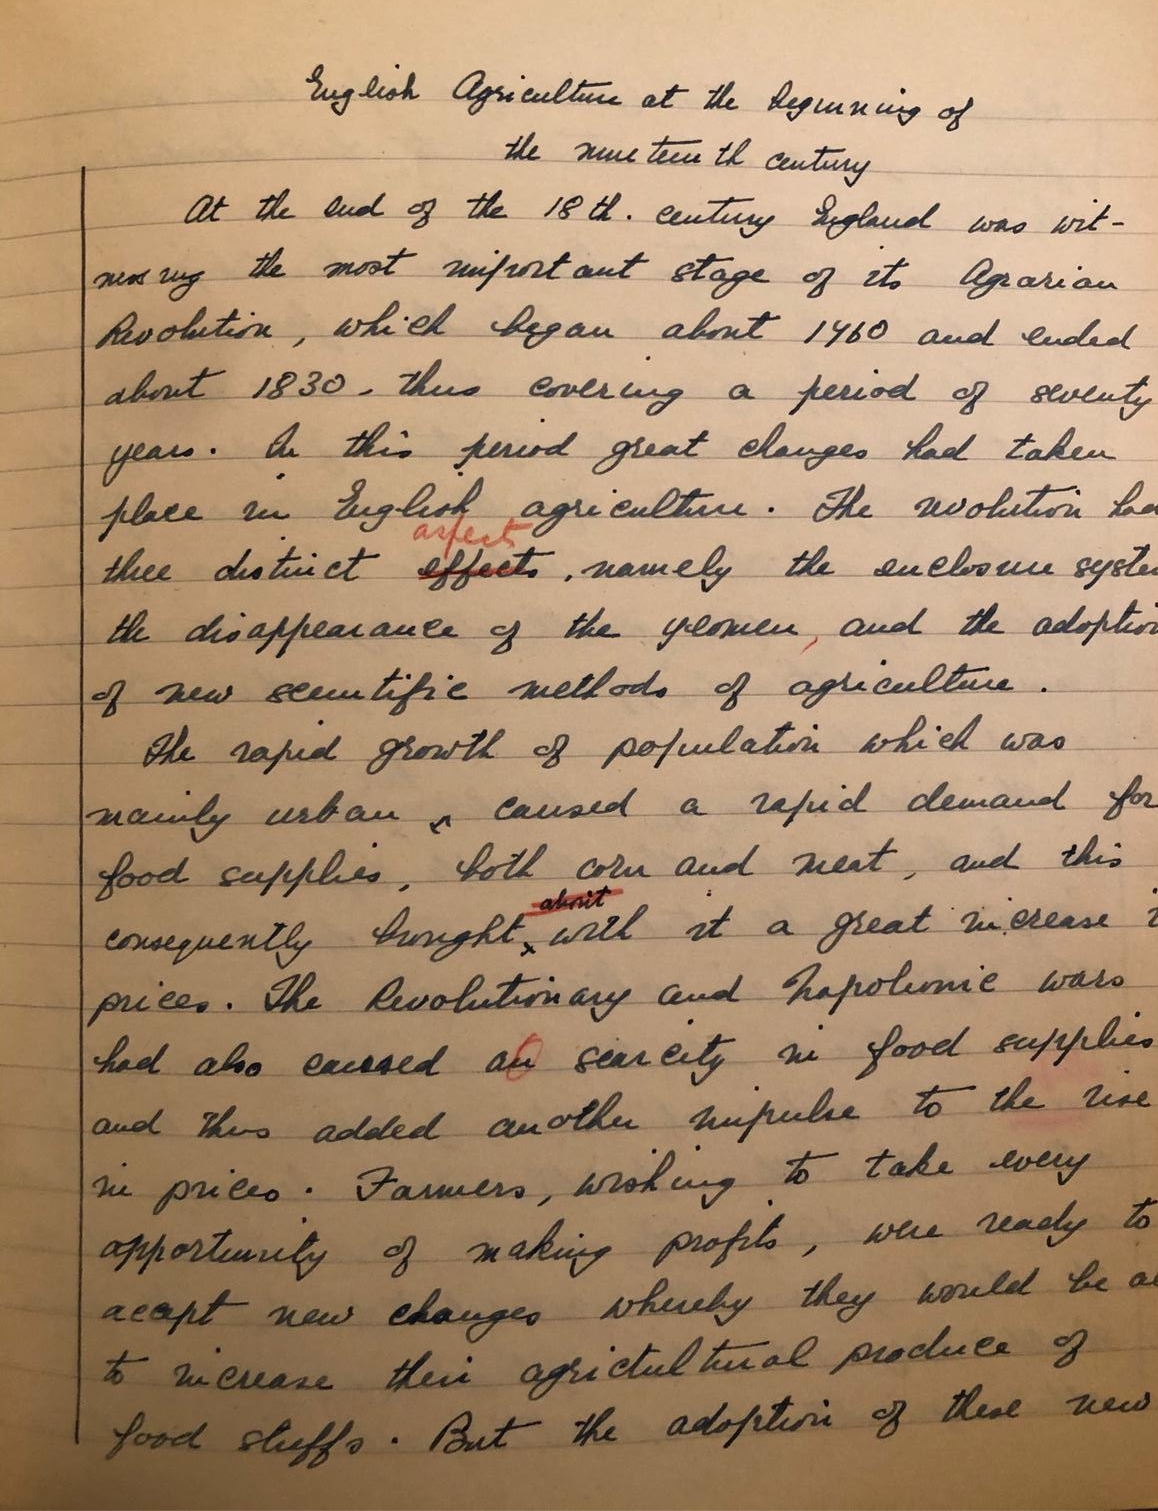 English Agriculture at the beginning of
the nineteenth century
At the end of the 18th. century England was wit-
nessing the most important stage of its Agrarian
Revolution, which began about 1760 and ended
about 1830 - thus covering a period of seventy
years. In this period great changes had taken
place in English agriculture. The revolution had
aspects
three distinct effects, namely the enclosure system
the disappearance of the yeomen, and the adoption
of new scientific methods of agriculture.
The rapid growth of population which was
mainly urban, caused a rapid demand for
food supplies, both corn and meat, and this
about
consequently brought with it a great increase i
prices. The Revolutionary and Napoleonic wars
had also caused an scarcity in food supplies
and thus added another impulse to the rise
in prices. Farmers, wishing to take every
opportunity of making profits, were ready to
accept new changes whereby they would be a
to increase their agricultural produce of
food stuffs. But the adoption of these new